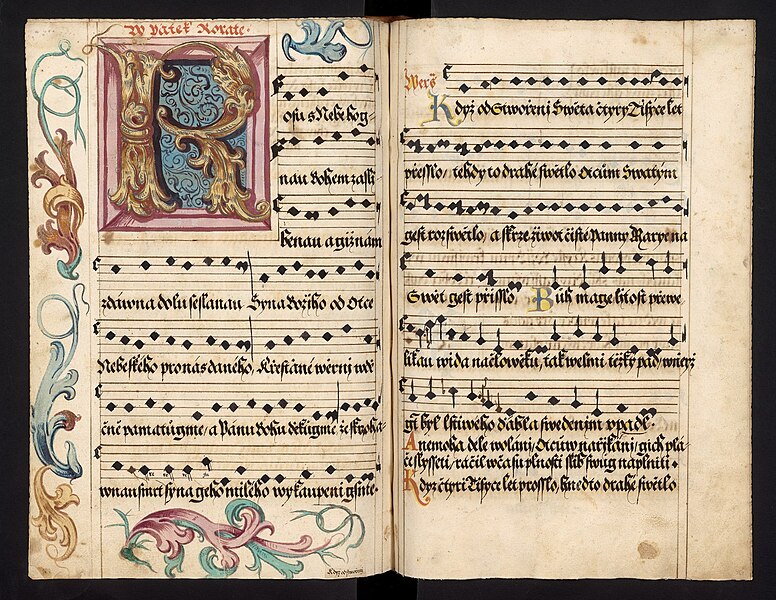 W Pátek Rorate.
R
osu s Nebe hog=
nau Bohem zasli=
benau a giž nám
zdáwna dolu seslanau Syna Božiho od Otce
Nebeského pro nás daného, Křestiané wěrnj wdě
čně pamatugme, a Pánu Bohu děkugme že skrze
smrt syna geho milého wykaupeni gsme.
Když od stwořenj
Wers̃
Když od Stwořenj Swěta čtyry Tisyce let
přesslo, tehdy to drahé swětlo Otcům Swatým
gest rozswětlo, a skrze žiwot čisté Panny Marye na
Swět gest přisslo, Bůh mage litost přewe
likau wida nad člowěku, tak welmi težky pád, w nierž
gt̃ byl lstiwého ďábla swedenjm vpadl.
A nemoha dele wolánj, Otcůw nařjkánj, gich pla
če slysseti, ráčil w času plnosti slib swůg naplniti.
Když čtyri Tisyce let prosslo, hned to drahé swětlo